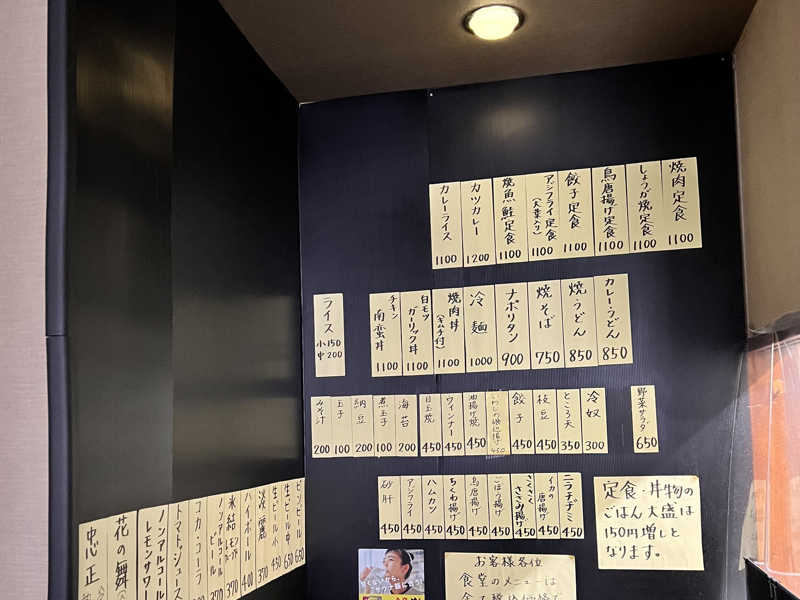 焼肉定食 1100
しょうが焼定食 1100
鳥唐揚げ定食 1100
餃子定食 1100
アジフライ定食 (大葉入り) 1100
焼魚鮭定食 1100
カツカレー 1200
カレーライス 1100
カレーうどん 850
焼うどん 850
焼そば 750
ナポリタン 900
冷麺 1000
焼肉丼 (キムチ付) 1100
白モツガーリック丼 1100
チキン南蛮丼 1100
ライス 小150 中200
野菜サラダ 650
冷奴 300
ところ天 350
枝豆 450
餃子 450
油揚げ焼 450
ウィンナー 450
目玉焼 450
海苔 200
煮玉子 100
納豆 200
玉子 100
みそ汁 200
ニラチヂミ 450
イカの唐揚げ 450
さくさくささみ揚げ 450
ごぼう揚げ 450
鳥唐揚げ 450
ちくわ揚げ 450
ハムカツ 450
アジフライ 450
砂肝 450
定食・丼物の
ごはん大盛は
150円増しと
なります。
お客様各位
食堂のメニューは
ビンビール 650
生ビール中 650
生ビール小 450
淡麗 370
ハイボール 400
氷結 レモン 370
ノンアルコールビール 370
コカ・コーラ
トマトジュース
ノンアルコールレモンサワー
花の舞
忠正